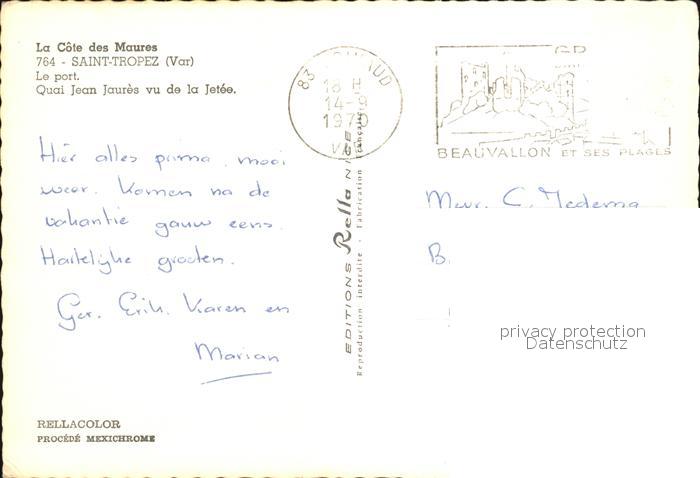 La Côte des Maures
764 - SAINT-TROPEZ (Var)
Le port.
Quai Jean Jaurès vu de la Jetée.
83
18 H
14-9
1970
VAR
BEAUVALLON ET SES PLAGES
Hier alles prima, mooi
weer. Komen na de
vakantie gauw eens.
Hartelijke groeten.
Ger. Erik. Karen en
Marian
Mevr. C. Medema
B.
EDITIONS Rella NICE
Reproduction interdite - Fabrication Française
privacy protection
Datenschutz
RELLACOLOR
PROCÉDÉ MEXICHROME